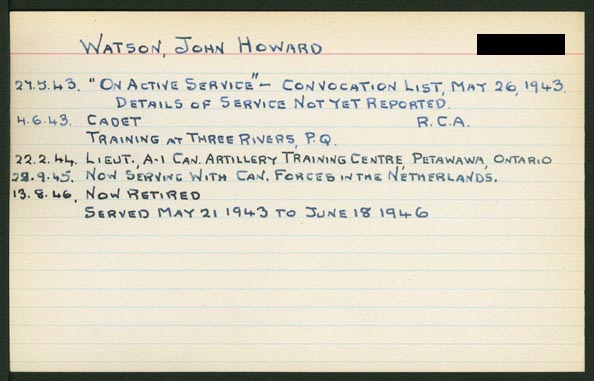 WATSON, JOHN HOWARD
27.5.43. "ON ACTIVE SERVICE" – CONVOCATION LIST, MAY 26, 1943.
DETAILS OF SERVICE NOT YET REPORTED.
4.6.43. CADET R.C.A.
TRAINING AT THREE RIVERS, P.Q.
22.2.44. LIEUT., A-1 CAN. ARTILLERY TRAINING CENTRE, PETAWAWA, ONTARIO
28.9.45. NOW SERVING WITH CAN. FORCES IN THE NETHERLANDS.
13.8.46. NOW RETIRED
SERVED MAY 21 1943 TO JUNE 18 1946